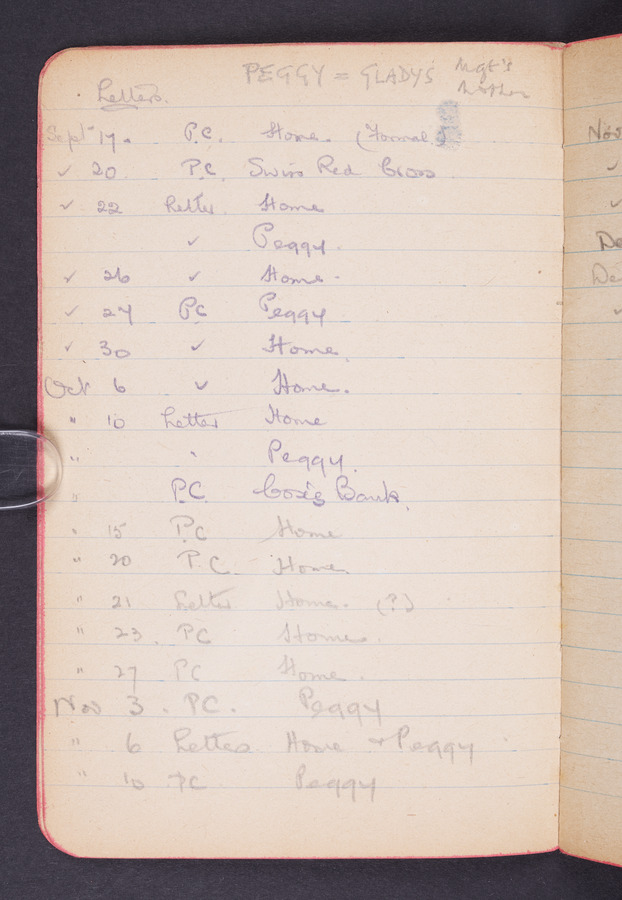 PEGGY = GLADYS Mgt's
Mother
Letters.
Sept 17. P.C. Home. (Formal)
✓ 20 P.C. Swiss Red Cross
✓ 22 Letter Home
✓ Peggy.
✓ 26 ✓ Home.
✓ 27 PC Peggy
✓ 30 ✓ Home.
Oct 6 ✓ Home.
" 10 Letter Home
" " Peggy.
" P.C. Cox's Bank.
" 15 P.C Home
" 20 P.C. Home.
" 21 Letter Home. (?)
" 23. PC Home.
" 27 PC Home.
Nov 3. PC. Peggy
" 6 Letter Home + Peggy
" 10 PC Peggy
Nov
✓
✓
De
De
✓